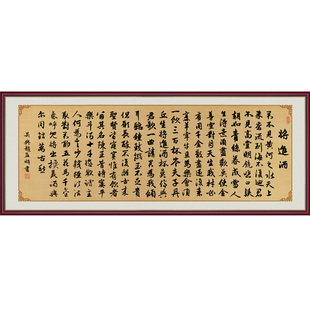 將進酒
君不見黃河之水天上
來奔流到海不復迴君
不見高堂明鏡悲白髮
朝如青絲暮成雪人
生得意須盡歡莫使金
樽空對月天生我材必
有用千金散盡還復來
烹羊宰牛且為樂會須
一飲三百杯岑夫子丹
丘生將進酒君莫停與
君歌一曲請君為我傾
耳聽鐘鼓饌玉不足貴
但願長醉不願醒古來
聖賢皆寂寞惟有飲者
留其名陳王昔時宴平
樂斗酒十千恣歡謔主
人何為言少錢徑須沽
取對君酌五花馬千金
裘呼兒將出換美酒與
爾同銷萬古愁
吳興趙孟頫書